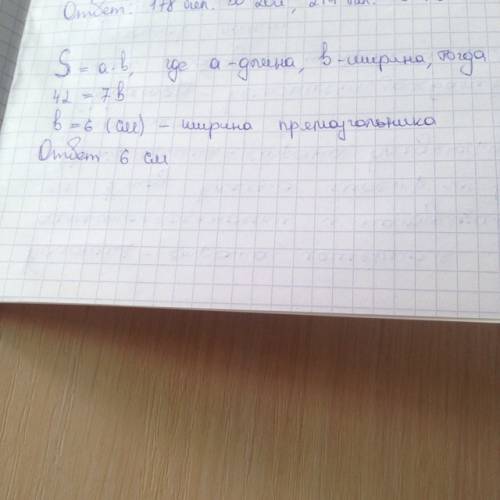 Ответ: 178
S = a·b, где a-длина, b-ширина, тогда
42 = 7b
b = 6 (см) - ширина прямоугольника
Ответ 6 см